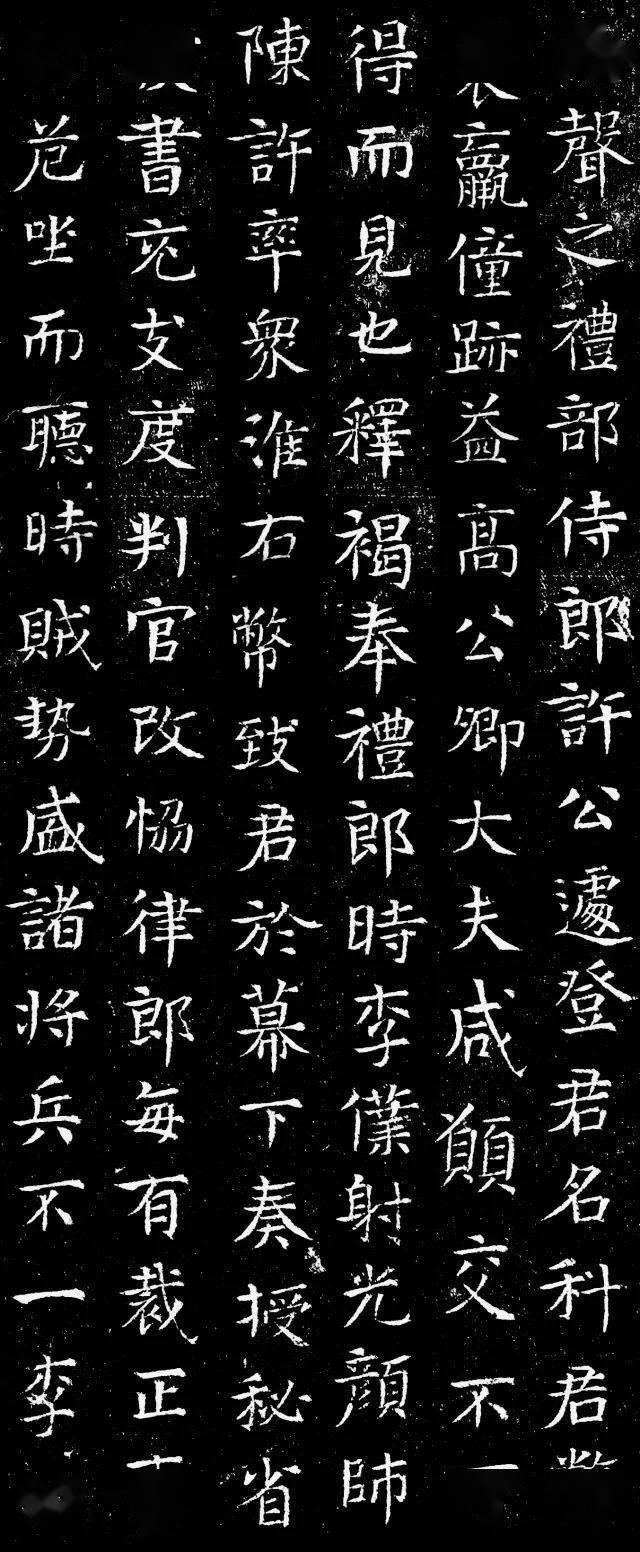 聲之禮部侍郎許公遽登君名科君
羸僮跡益高公卿大夫咸顚交不
得而見也釋褐奉禮郎時李僕射光顔帥
陳許率衆淮右幣致君於幕下奏授秘省
書充支度判官改恊律郎每有裁正
危坐而聽時賊勢盛諸將兵不一李